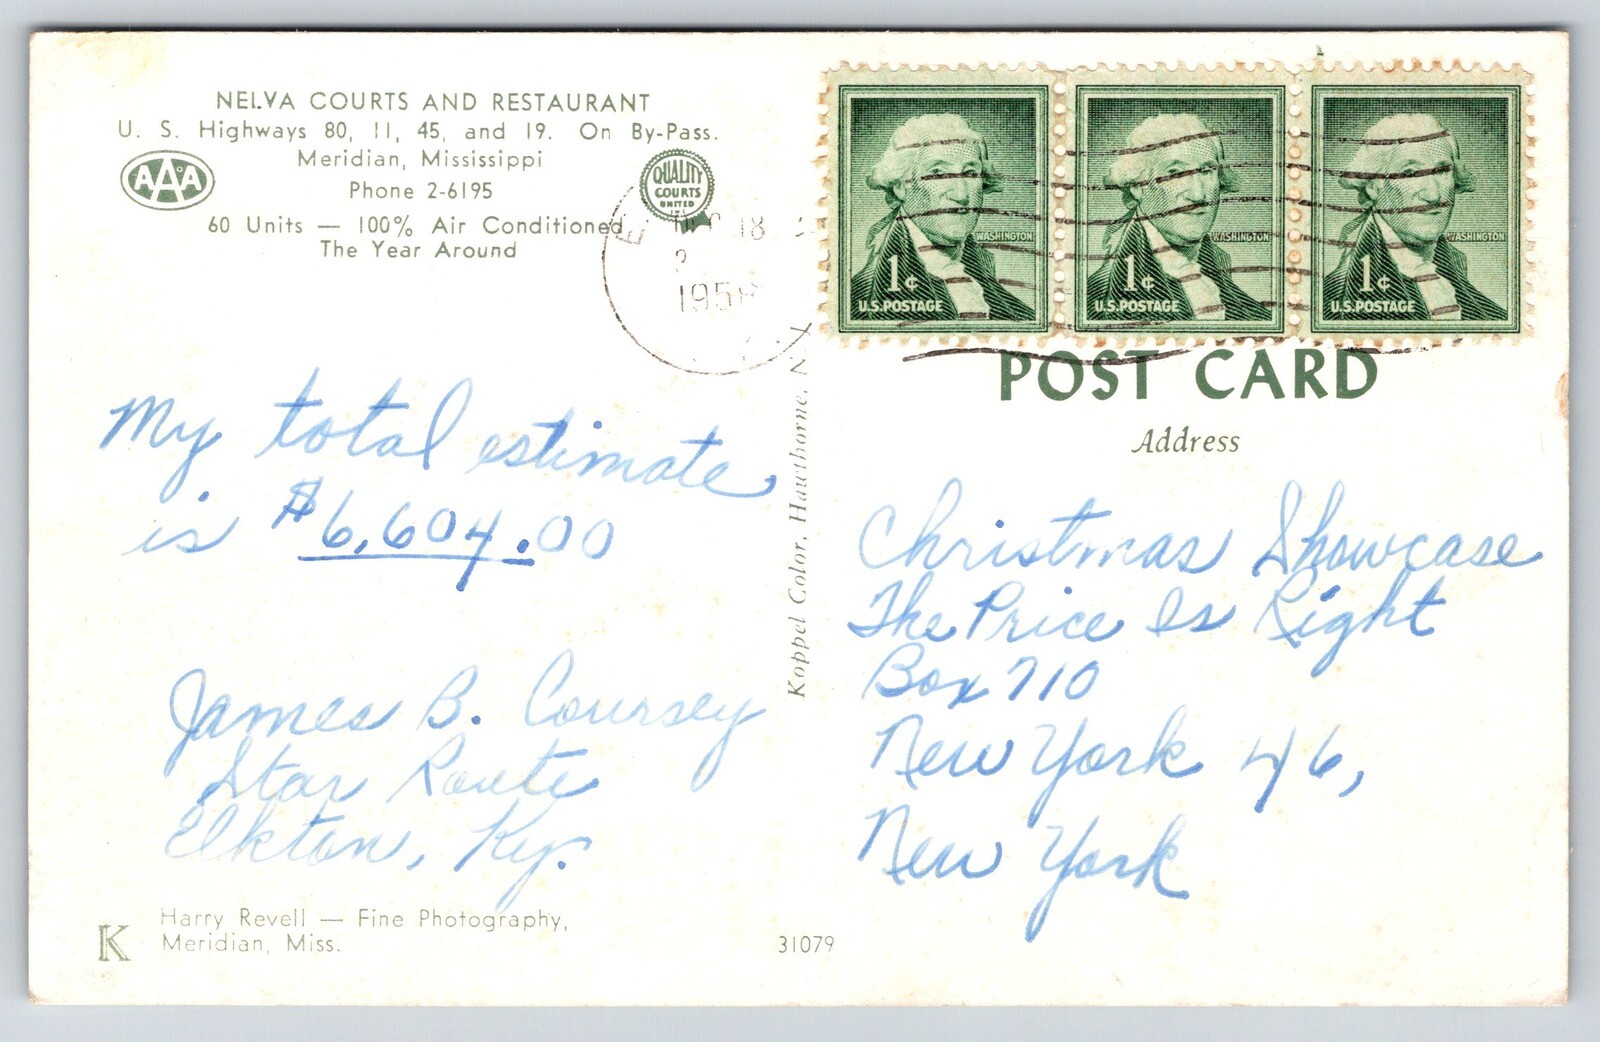 NELVA COURTS AND RESTAURANT
U. S. Highways 80, 11, 45, and 19. On By-Pass.
Meridian, Mississippi
Phone 2-6195
60 Units — 100% Air Conditioned
The Year Around
AAA
QUALITY
COURTS
UNITED
INC
18
1958
WASHINGTON
1¢
U.S. POSTAGE
WASHINGTON
1¢
U.S. POSTAGE
WASHINGTON
1¢
U.S. POSTAGE
My total estimate
is $6,604.00
James B. Coursey
Star Route
Elkton, Ky.
K
Harry Revell — Fine Photography,
Meridian, Miss.
31079
Koppel Color, Hawthorne, N.
POST CARD
Address
Christmas Showcase
The Price Is Right
Box 710
New York 46,
New York